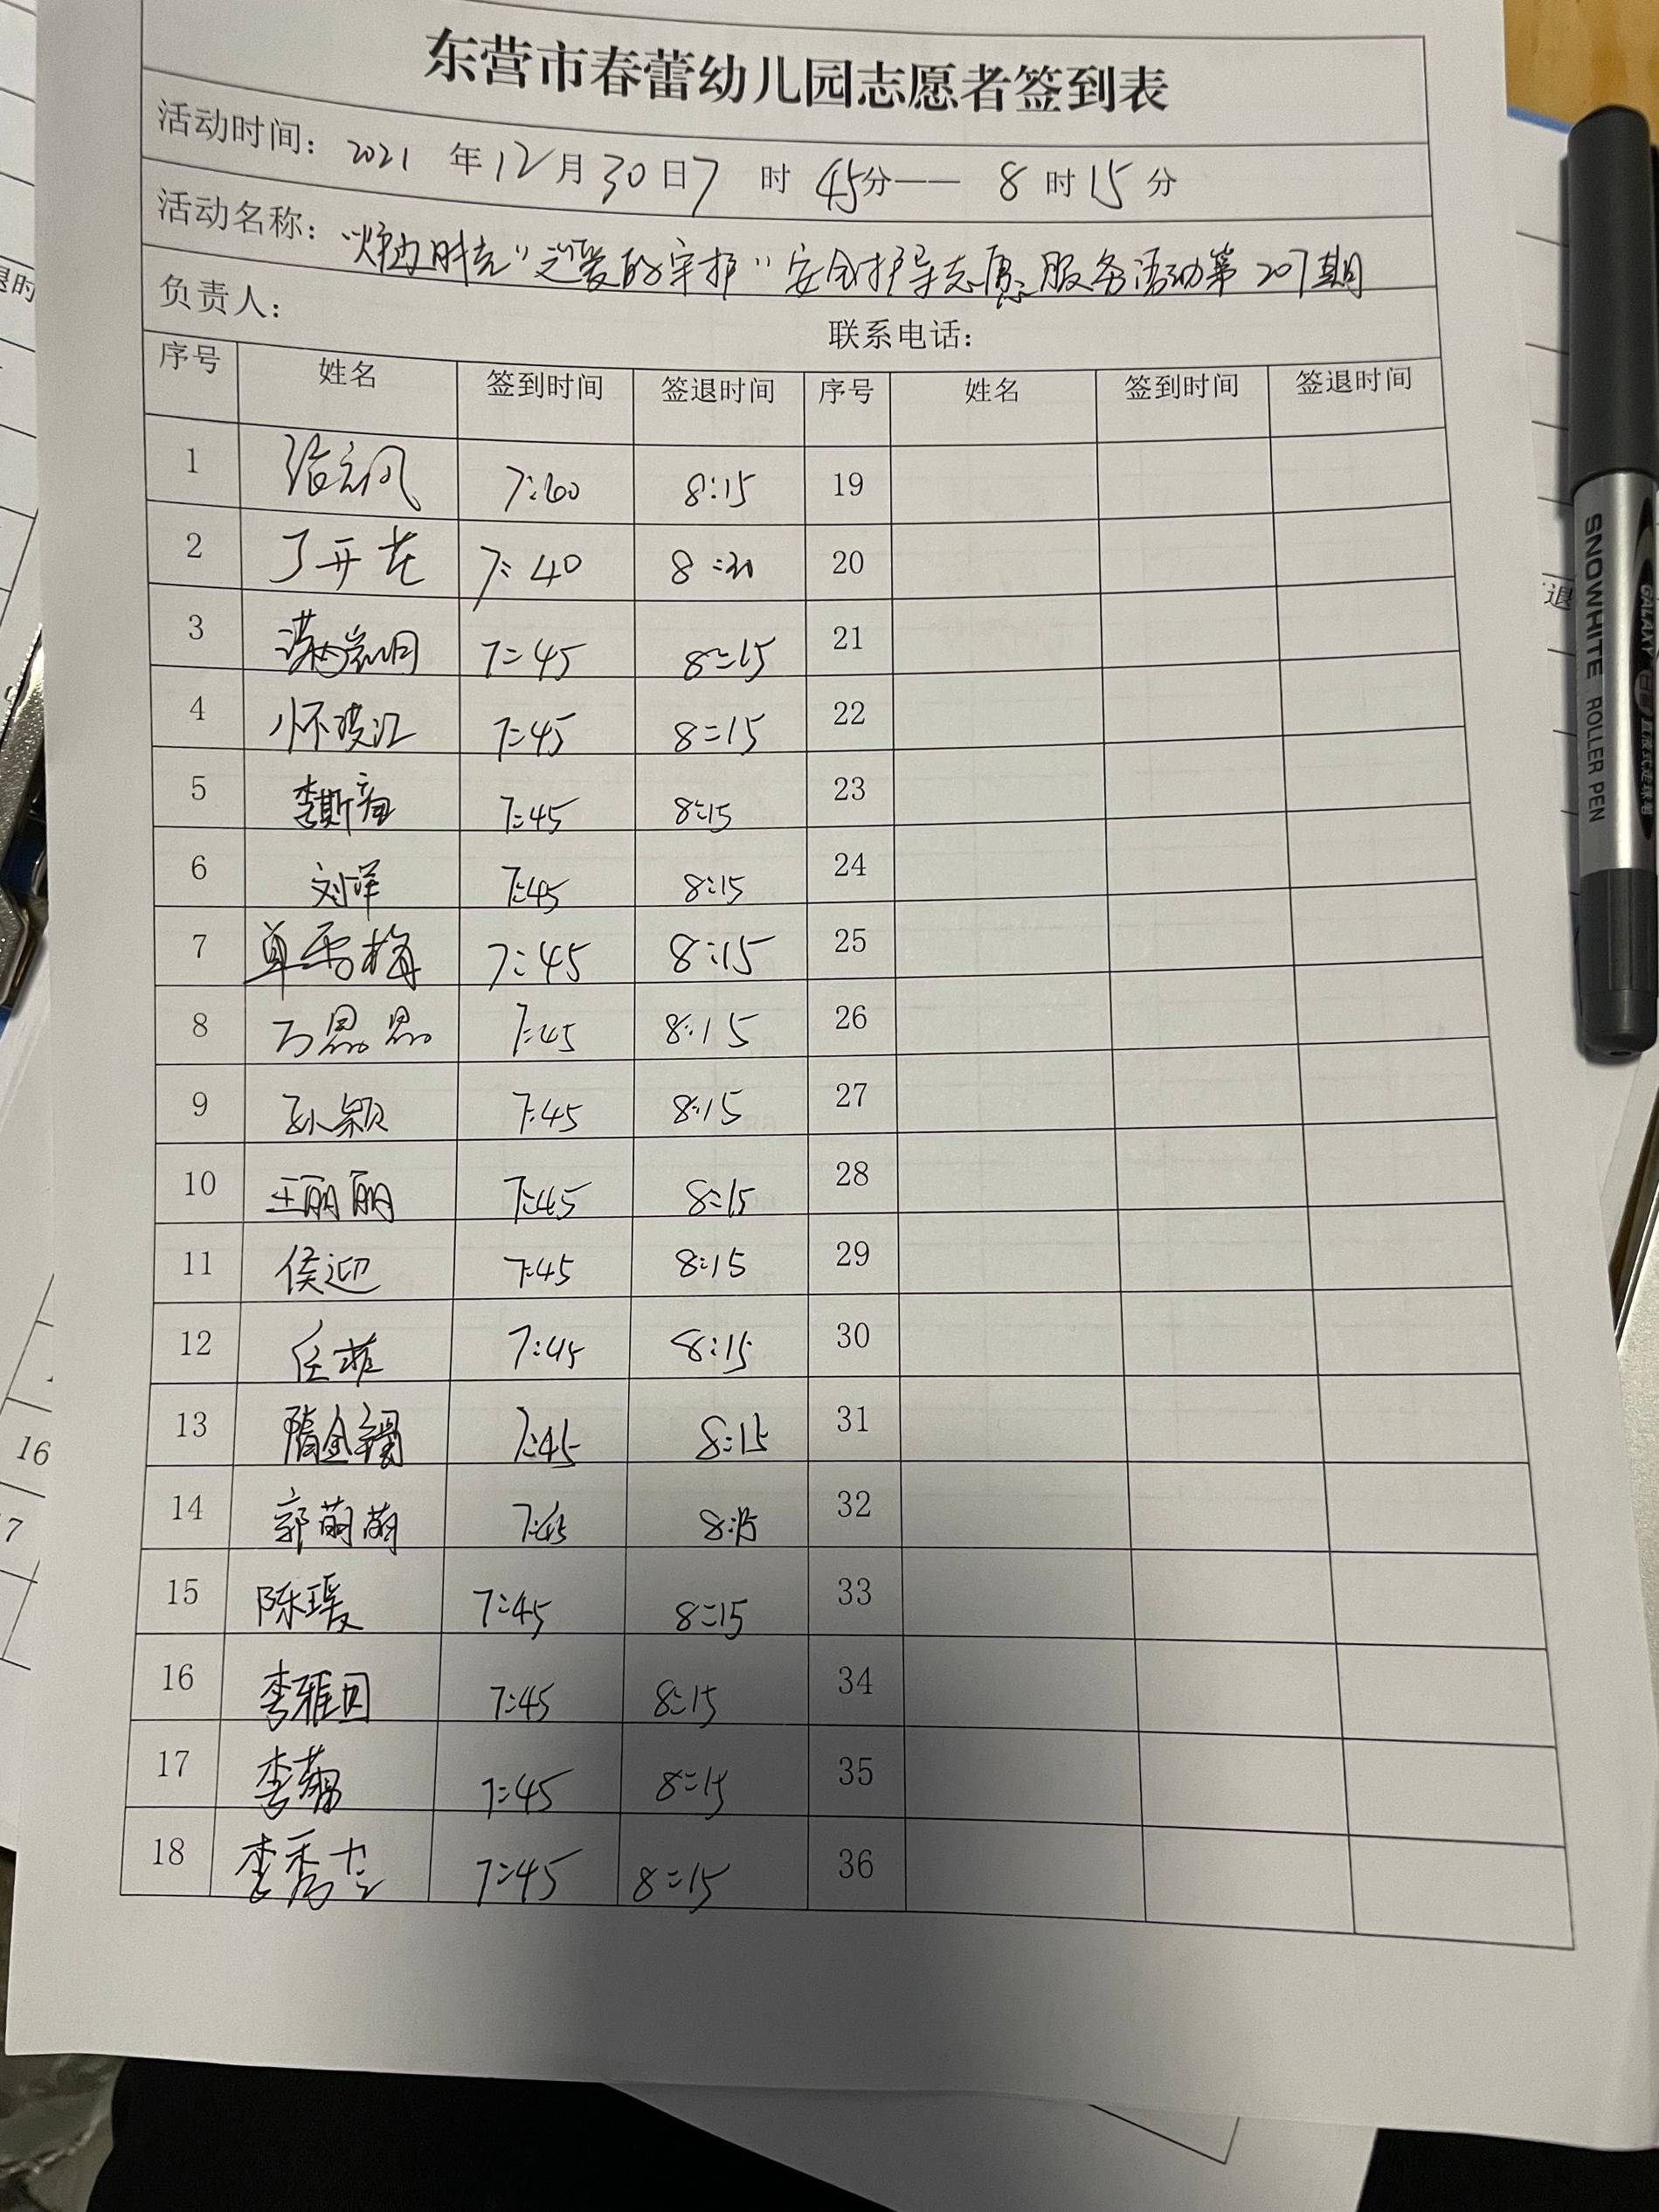 东营市春蕾幼儿园志愿者签到表
活动时间：2021 年 12 月 30 日 7 时 45 分—— 8 时 15 分
活动名称：“炉边时光”之“爱的守护”安全护导志愿服务活动第 207 期
负责人： 联系电话：
序号 姓名 签到时间 签退时间 序号 姓名 签到时间 签退时间
1 8:15 19
2 丁开花 7:40 8:20 20
3 7:45 8:15 21
4 7:45 8:15 22
5 李斯 7:45 8:15 23
6 刘洋 7:45 8:15 24
7 单雪梅 7:45 8:15 25
8 万恩恩 7:45 8:15 26
9 孙颖 7:45 8:15 27
10 王丽丽 7:45 8:15 28
11 侯迎 7:45 8:15 29
12 任菲 7:45 8:15 30
13 隋金 7:45 8:15 31
14 郭萌萌 7:45 8:15 32
15 陈瑗 7:45 8:15 33
16 李雅 7:45 8:15 34
17 李 7:45 8:15 35
18 李秀 7:45 8:15 36
SNOWHITE ROLLER PEN
GALAXY
16
7